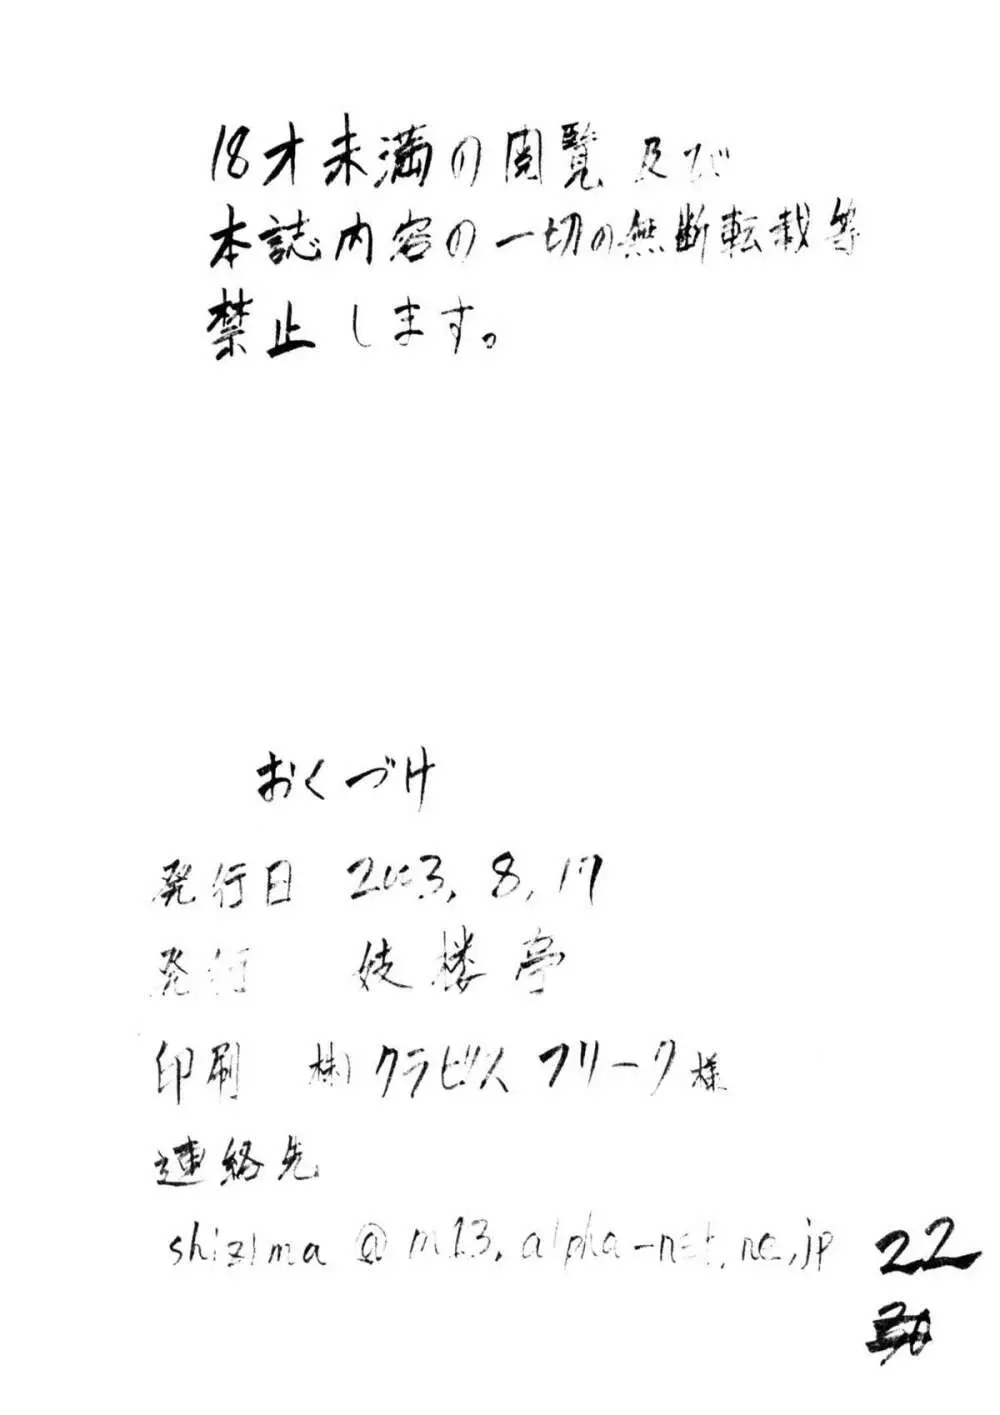 18才未満の閲覧及び
本誌内容の一切の無断転載等
禁止します。
おくづけ
発行日 2003.8.17
発行 妓楼亭
印刷 株)クラビズフリーク様
連絡先
shizima@m13.alpha-net.ne.jp
22
30